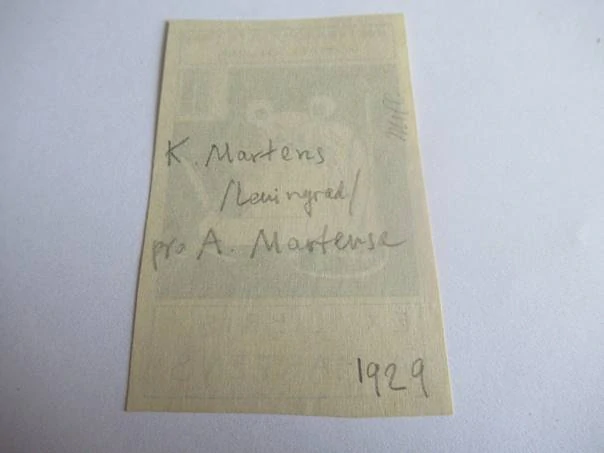 K. Martens
/Leningrad/
pro A. Martense
1929